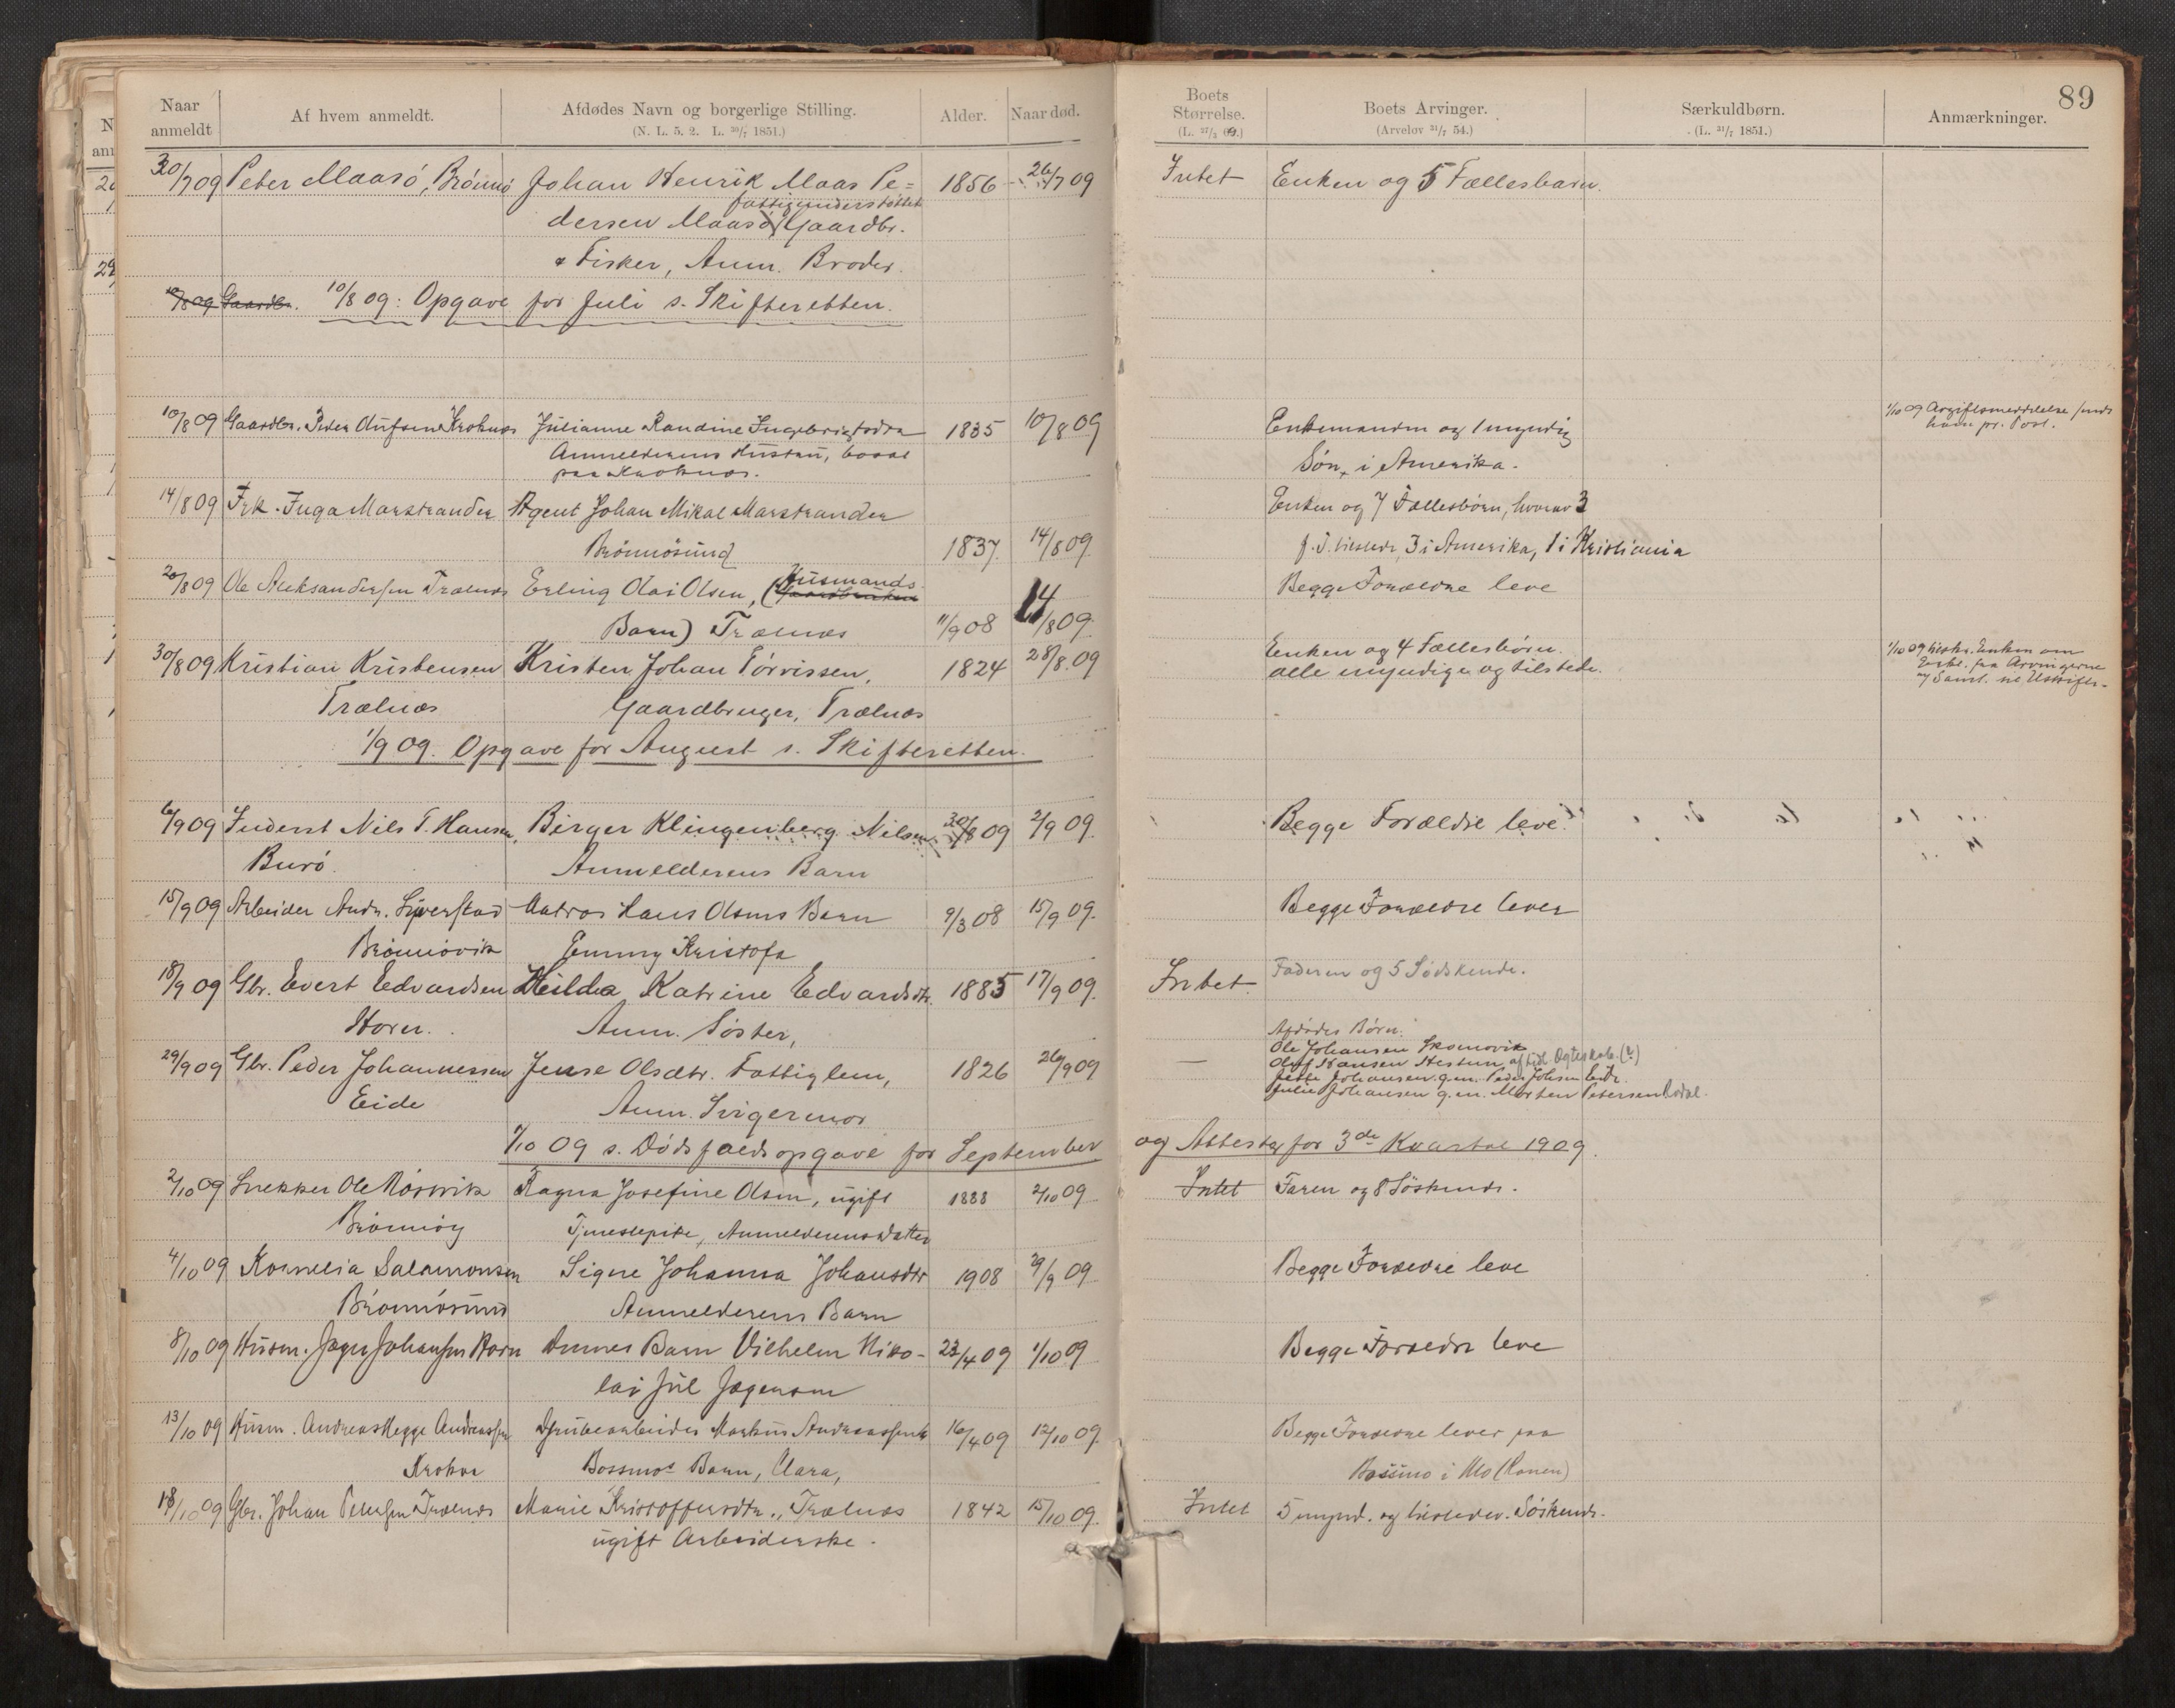 Naar anmeldt
Af hvem anmeldt.
Afdødes Navn og borgerlige Stilling.
(N. L. 5. 2. L. 30/7 1851.)
Alder.
Naar død.
Boets Størrelse.
Boets Arvinger.
(Arvelov 31/7 54.)
Særkuldbørn.
(L. 31/7 1851.)
Anmærkninger.
89
30/7 09 Peter Maasö, Brönnö Johan Henrik Maas Pe= 1856 26/7 09 Intet Enken og 5 Fællesbarn.
fattigunderstöttet
dersen Maasö Gaardbr.
& Fisker, Anm. Broder.
10/8 09 Gaardbr. 10/8 09: Opgave for Juli s. Skifteretten.
10/8 09 Gaardbr. Peder Olufsen Kroknæs Julianne Randine Ingebrigtsdtr 1835 10/8 09 Enkemanden og 1 myndig 1/10 09
Anmelderens Hustru, bosat Sön, i Amerika. pr. Post.
paa Kroknæs.
14/8 09 Frk. Inga Marstrander Agent Johan Mikal Marstrander Enken og 7 Fællesbörn, hvorav 3
Brönnösund 1837. 14/8 09. 3 i Amerika, 1 i Kristiania
20/8 09 Ole Aleksandersen Trælnæs Erling Olai Olsen, (Husmands Begge Forældre leve
Barn) Trælnæs 11/9 08 14/8 09.
30/8 09 Kristian Kristensen Kristen Johan Törrissen, 1824 28/8. 09 Enken og 4 Fællesbörn. 1/10 09 Enken om
alle myndige og tilstede.
Trælnæs Gaardbruger, Trælnæs
1/9 09. Opgave for August s. Skifteretten.
6/9 09 Inderst Nils T. Hansen, Birger Klingenberg Nilsen 30/8 09 2/9 09. Begge Forældre leve.
Burö. Anmelderens Barn
15/9 09 Arbeider Andr. Syverstad Matros Hans Olsens Barn 9/3 08 15/9 09. Begge Forældre lever
Brönnövik Emmy Kristofa
18/9 09 Gbr. Evert Edvardsen Hilda Katrine Edvardsdtr. 1885 17/9 09. Intet. Faderen og 5 Södskende.
Horn. Anm. Söster,
29/9 09 Gbr. Peder Johannessen Jense Olsdtr. Fattiglem, 1826 26/9 09 —
Eide Anm. Svigermor
Afdödes Börn:
Ole Johansen Skomovik
Oluf Hansen Hestun af tidl. Ægteskab. (?)
Jette Johansen g.m. Peder Johsen Eide.
Julie Johansen g.m. Morten Petersen
1/10 09 s. Dödsfaldsopgave for September og Attester for 3de Kvartal 1909.
2/10 09 Snekker Ole Mosvik Ragna Josefine Olsen, ugift 1888 2/10 09 Intet Faren og 8 Söskende.
Brönnöy Tjenestepike, Anmelderens Datter
4/10 09 Kornelia Salamonsen Signe Johanna Johansdtr 1908 29/9 09 Begge Forældre leve
Brönnösund Anmelderens Barn
8/10 09 Husm. Jæger Johansen Horn Annes Barn Vilhelm Niko- 23/4 09 1/10 09 Begge Forældre leve
lai Jul Jægersen
13/10 09 Husm. Andreas Hegge Andreassen Grubearbeider Markus Andreassens 16/4 09 12/10 09. Begge Forældre lever paa
Krokaa Bossmo Barn, Clara, Bossmo i Mo (Ranen)
18/10 09 Gbr. Johan Petersen Trælnæs Marie Kristoffersdtr., Trælnæs 1842 15/10 09. Intet 5 mynd. og tilstedev. Söskende.
ugift Arbeiderske.